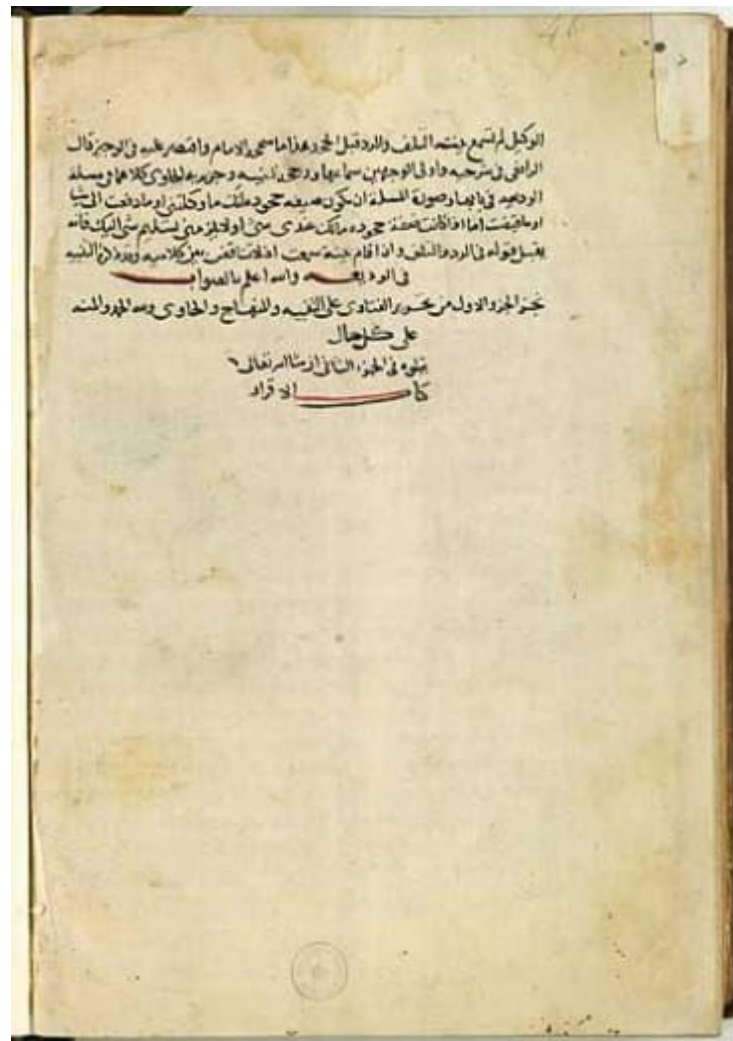 الوكيل لم تسمع بينته بالتلف والرد قبل الجحود هذا ما صححه الامام واقتصر عليه في الوجيز قال
الرافعي في شرحه واولى الوجهين سماعها ورجحه التنبيه وجرى به الحاوى كلاهما في مسئلة
الوديعة في بابها وصورة المسئلة ان يكون صيغة جحوده ما وكلتنى او ما دفعت الى شيا
او ما قبضت اما اذا كانت صيغة جحوده مالك عندى شى او لا يلزمنى تسليم شى اليك فانه
يقبل قوله في الرد والتلف واذا اقام بينة سمعت اذ لا تناقض بين كلاميه وقد ذكره التنبيه
في الوديعه والله اعلم بالصواب
نجز الجزو الاول من تحرير الفتاوى على التنبيه والمنهاج والحاوى ولله الحمد والمنه
على كل حال
يتلوه في الجزء الثانى ان شا الله تعالى
كتاب الاقرار